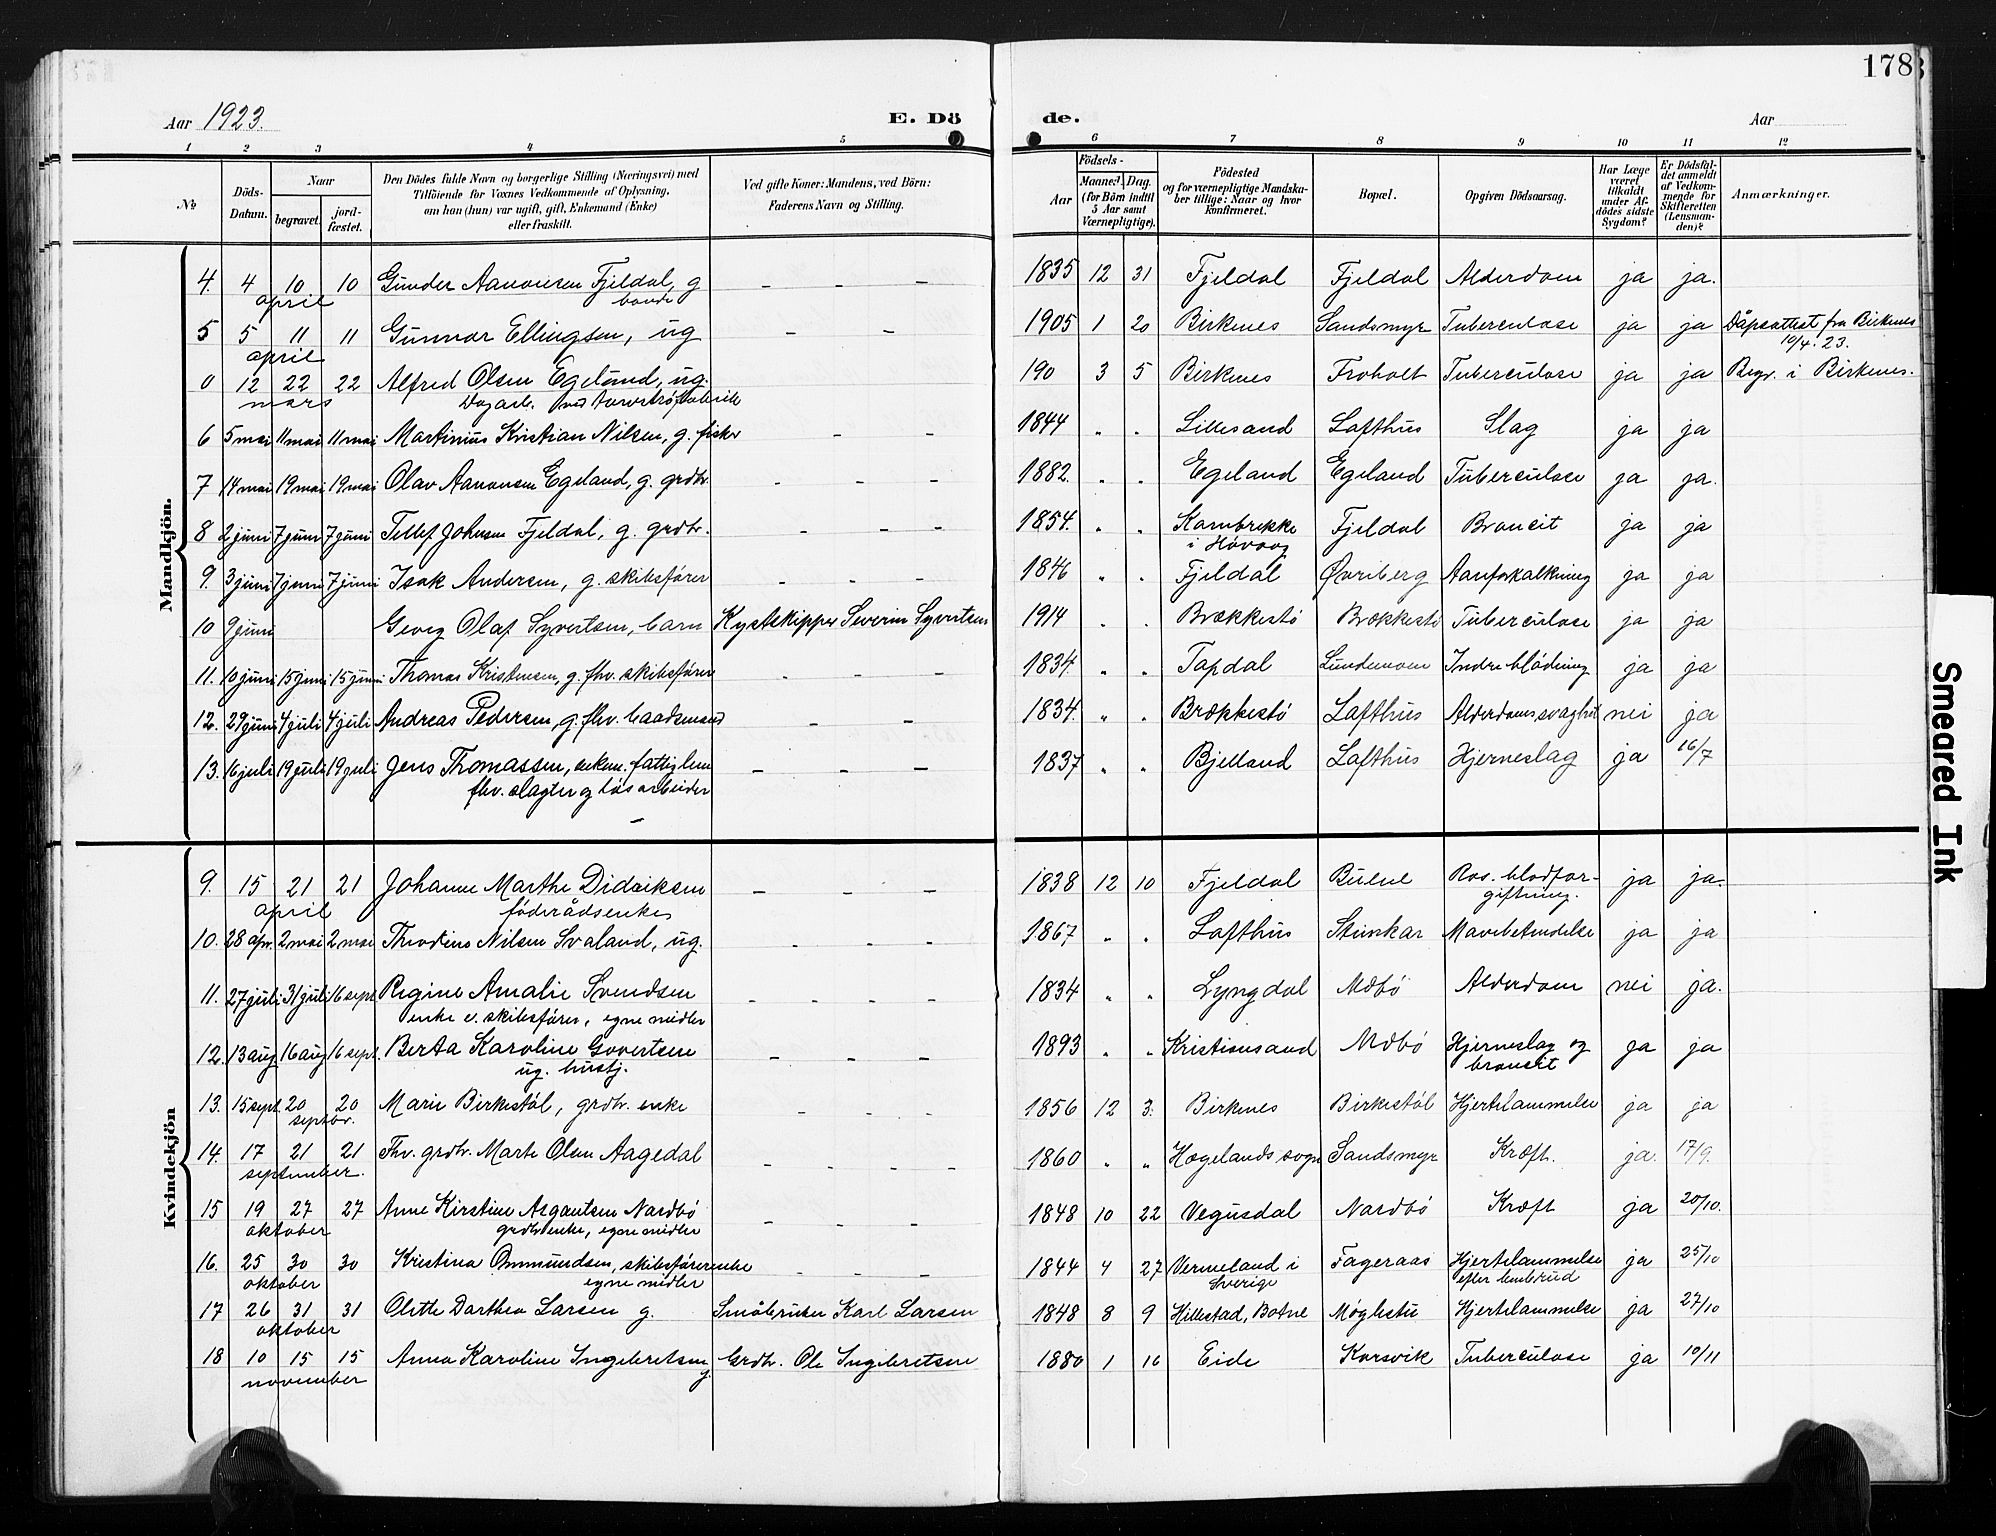 178
Aar 1923.
E. Dö
de.
Aar
1 2 3 4 5 6 7 8 9 10 11 12
№
Döds-Datum.
Naar
begravet.
jordfæstet.
Den Dödes fulde Navn og borgerlige Stilling (Næringsvei) med
Tilföiende for Voxnes Vedkommende af Oplysning,
om han (hun) var ugift, gift, Enkemand (Enke)
eller fraskilt.
Ved gifte Koner: Mandens, ved Börn:
Faderens Navn og Stilling.
Födsels-
Aar
Maaned. Dag.
(for Börn indtil
5 Aar samt
Værnepligtige).
Födested
og for værnepligtige Mandskaber tillige: Naar og hvor
konfirmeret.
Bopæl.
Opgiven Dödsaarsag.
Har Læge
været
tilkaldt
under Afdödes sidste
Sygdom?
Er Dödsfaldet anmeldt
af Vedkommende for
Skifteretten
(Lensmanden)?
Anmærkninger.
Mandkjön.
4. 4 10 10 Gunder Aanonsen Fjeldal, g – – – 1835 12 31 Fjeldal Fjeldal Alderdom ja ja.
april bonde
5 5 11 11 Gunnar Ellingsen, ug – – 1905 1 20 Birkenes Sandsmyr Tuberculose ja ja Dåpsattest fra Birkenes
april 10/4. 23.
0 12 22 22 Alfred Olsen Egeland, ug. 190 3 5 Birkenes Froholt Tuberculose ja ja Begr. i Birkenes.
mars Dagarb. ved
6 5 mai 11 mai 11 mai Martinius Kristian Nilsen, g. fisker – – 1844 " " Lillesand Lofthus Slag ja ja
7 14 mai 19 mai 19 mai Olav Aanonsen Egeland, g. grdbr. – – – 1882. " " Egeland Egeland Tuberculose ja ja.
8 2 juni 7 juni 7 juni Tellef Johnsen Fjeldal, g. grdbr. – – – 1854. " " Kambrekke Fjeldal Broncit ja ja
i Høvaag
9. 3 juni 7 juni 7 juni Isak Andersen, g. skibsfører – – – 1846 " " Fjeldal Øvriberg Aareforkalkning ja ja
10 9 juni Georg Olaf Syvertsen, barn Kystskipper Severin Syvertsen 1914 " " Brækkestø Brækkestø Tuberculose ja ja
11. 10 juni 15 juni 15 juni Thomas Kristensen, g. fhv. skibsfører – – – 1834. " " Topdal Lundemoen Indre blødning ja ja
12. 29 juni 4 juli 4 juli Andreas Pedersen, g. fhv. baadsmand – – 1834. " " Brækkestø Lofthus Alderdomssvaghet nei ja
13. 16 juli 19 juli 19 juli Jens Thomassen, enkem. fattiglem – – – 1837 " " Bjelland Lofthus Hjerneslag ja 16/7
fhv. slagter og løsarbeider
Kvindekjön
9. 15 21 21 Johanne Marthe Didriksen – – – 1838 12 10 Fjeldal Ros. blodfor- ja ja.
april föderådsenke giftning.
10. 28 apr. 2 mai 2 mai Nilsen Svaland, ug. – – – 1867 " " Lofthus Stinskar Mavebetendelse ja ja
11. 27 juli 31 juli 16 sept Regine Amalie Svendsen – – – 1834 " " Lyngdal Mæbø Alderdom nei ja.
enke e. skibsfører, egne midler
12. 13 aug. 16 aug 16 sept. Berta Karoline Govertsen – – – 1893 " " Kristiansand Mæbø Hjerneslag og ja ja
ug. hustj. broncit
13. 15 sept. 20 20 Marie Birkestøl, grdbr. enke – – – 1856 12 3. Birkenes Birkestøl Hjertelammelse ja ja
septbr.
14. 17 21 21 Fhv. grdbr. Marte Olsen Aagedal – – – – 1860 " " Hægelands sogn Sandsmyr Kræft. ja. 17/9.
september.
15 19 27 27 Anne Kirstine Asgautsen Nordbø – – – 1848 10 22 Vegusdal Nordbø Kræft ja 20/10.
oktober grdbrenke, egne midler
16. 25 30 30 Kristina Ommundsen, skibsførerenke – – 1844 4 27 Vermeland i Fageraas Hjertelammelse ja 25/10
oktober egne midler Sverige efter benbrud
17 26 31 31 Olette Dorthea Larsen g. Småbruker Karl Larsen 1848 8 9 Hillestad, Botne Møglestu Hjertelammelse ja 27/10
oktober
18 10 15 15 Anna Karoline Ingebretsen g. Grdbr. Ole Ingebretsen 1880 1 16 Eide Korsvik Tuberculose ja 10/11
november
Smeared Ink